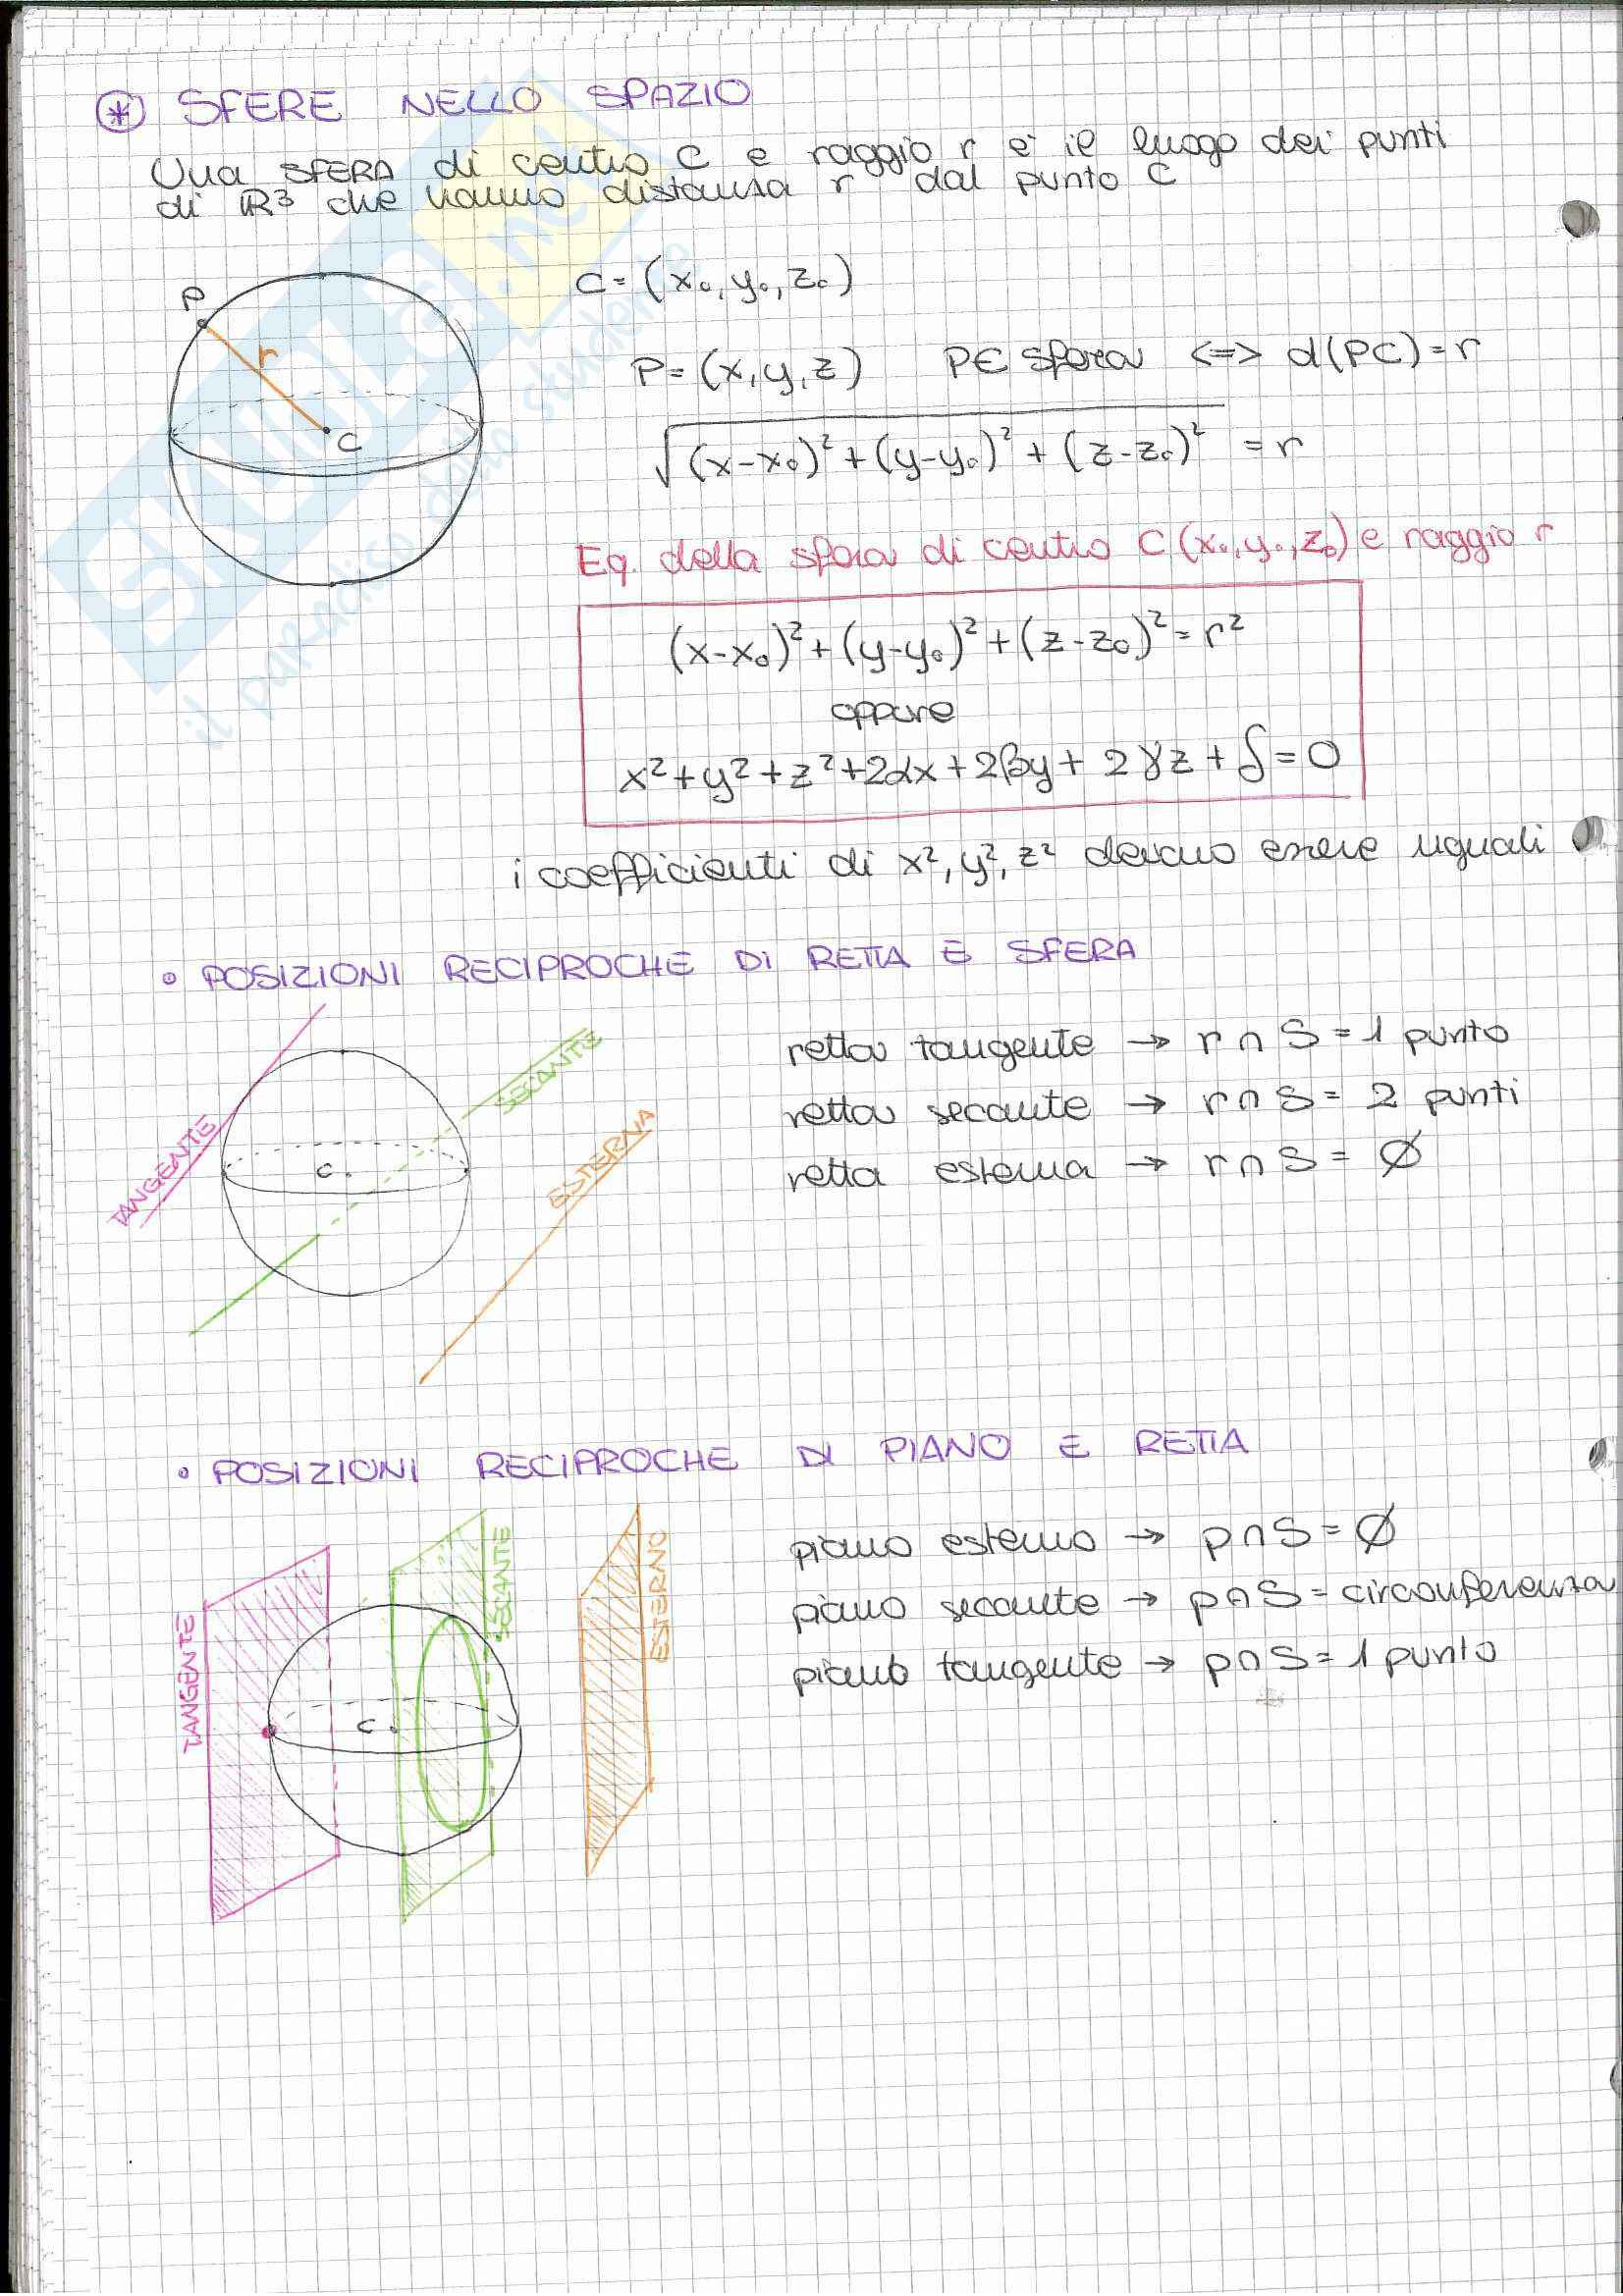 * SFERE NELLO SPAZIO
Una SFERA di centro C e raggio r è il luogo dei punti
di ℝ³ che hanno distanza r dal punto C
P
r
C
C = (x₀, y₀, z₀)
P = (x, y, z) P ∈ sfera <=> d(PC) = r
√((x-x₀)² + (y-y₀)² + (z-z₀)²) = r
Eq. della sfera di centro C (x₀, y₀, z₀) e raggio r
(x-x₀)² + (y-y₀)² + (z-z₀)² = r²
oppure
x² + y² + z² + 2αx + 2βy + 2γz + δ = 0
i coefficienti di x², y², z² devono essere uguali
• POSIZIONI RECIPROCHE DI RETTA E SFERA
TANGENTE
SECANTE
ESTERNA
C
retta tangente → r ∩ S = 1 punto
retta secante → r ∩ S = 2 punti
retta esterna → r ∩ S = ∅
• POSIZIONI RECIPROCHE DI PIANO E RETTA
TANGENTE
SECANTE
ESTERNO
C
piano esterno → p ∩ S = ∅
piano secante → p ∩ S = circonferenza
piano tangente → p ∩ S = 1 punto
SKUOLA.net
il paradiso dello studente